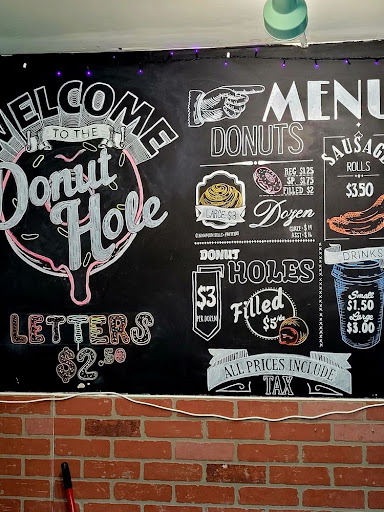 WELCOME
TO THE
Donut
Hole
LETTERS
$2.50
MENU
DONUTS
REG $1.25
SP. $1.75
FILLED. $2
LARGE $3
Dozen
SAUSAGE
ROLLS
$3.50
DONUT HOLES
$3
PER DOZEN
Filled
DRINKS
Small
$1.50
Large
$3.00
ALL PRICES INCLUDE
TAX